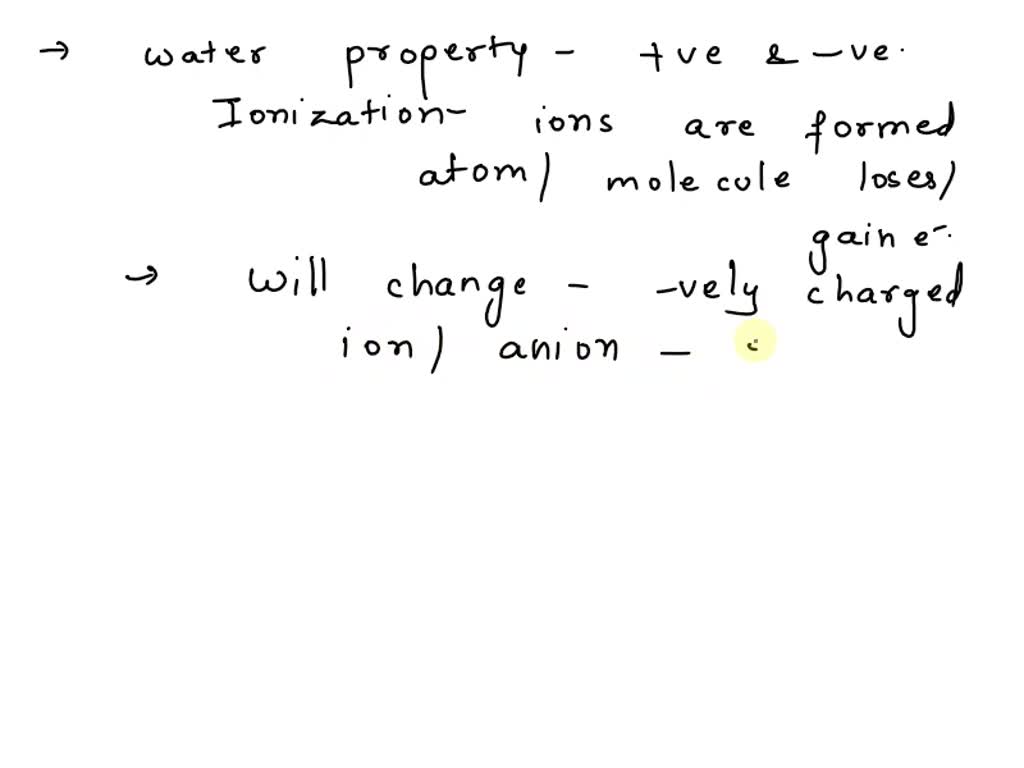 → water property - +ve & -ve.
Ionization- ions are formed
atom/ molecule loses/
gain e-.
→ will change - -vely charged
ion/ anion -